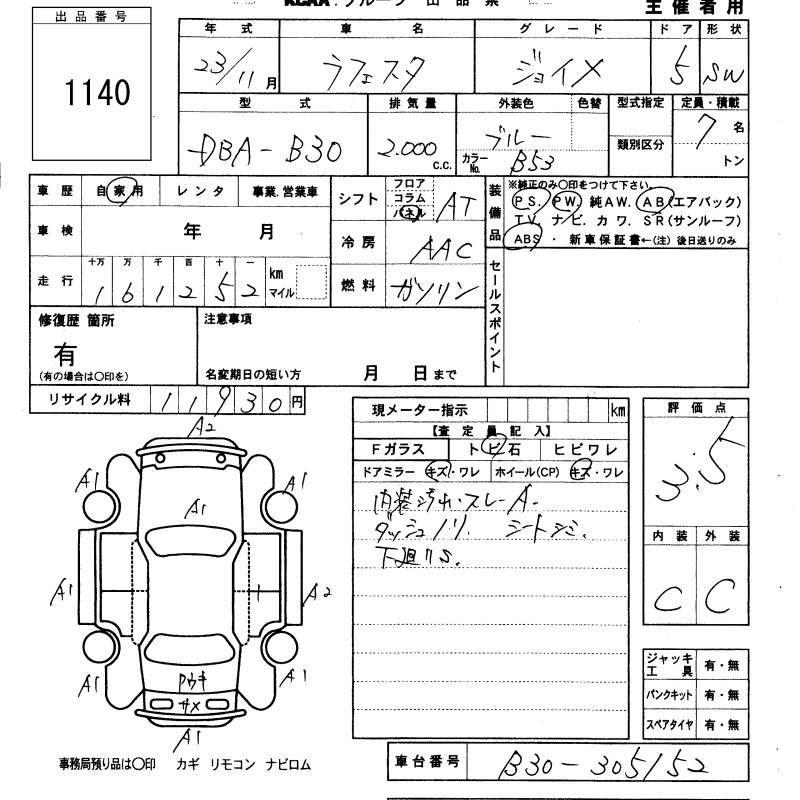 KCAA グループ 出品票
主催者用
出品番号
1140
年式 車名 グレード ドア 形状
23/11月 ラフェスタ ジョイメ 5 SW
型式 排気量 外装色 色替 型式指定 定員・積載
DBA-B30 2.000 c.c. ブルー カラーNo. B53 類別区分 7名 トン
車歴 自家用 レンタ 事業.営業車
シフト フロア コラム パネル AT
装備品 ※純正のみ〇印をつけて下さい。
PS. PW. 純AW. AB(エアバック)
TV. ナビ. カワ. SR(サンルーフ)
ABS ・ 新車保証書←(注) 後日送りのみ
車検 年 月
冷房 AAC
走行 十万 万 千 百 十 一
1 6 1 2 5 2 km マイル
燃料 ガソリン
セールスポイント
修復歴 箇所 注意事項
有
(有の場合は〇印を) 名変期日の短い方 月 日まで
リサイクル料 11930円
現メーター指示 km
【査定員記入】
Fガラス トビ石 ヒビワレ
ドアミラー キズ・ワレ ホイール(CP) キズ・ワレ
内装汚れ・スレ A-
ダッシュノリ. シートシミ.
下廻りS.
評価点
3.5
内装 外装
C C
A2
A1 A1
A1
A1 A2
A1 A1
Pウキ
サメ
A1
ジャッキ 工具 有・無
パンクキット 有・無
スペアタイヤ 有・無
事務局預り品は〇印 カギ リモコン ナビロム
車台番号 B30-305152